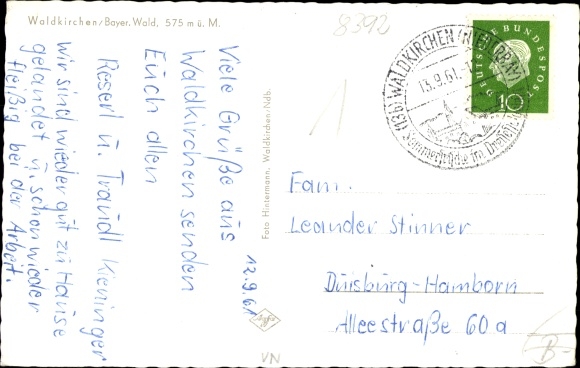 Waldkirchen/Bayer. Wald, 575 m ü. M.
8392
Viele Grüße aus
Waldkirchen senden
Euch allen
Reserl u. Traudl Kieninger
Wir sind wieder gut zu Hause
gelandet u. schon wieder
fleißig bei der Arbeit.
12.9.61
Foto Hintermann, Waldkirchen/Ndb.
Agfa
VN
1
(13b) WALDKIRCHEN (NIEDERBAY)
13.9.61
Sommerfrische im
DEUTSCHE BUNDESPOST
10
Fam.
Leander Stinner
Duisburg-Hamborn
Alleestraße 60a
B-